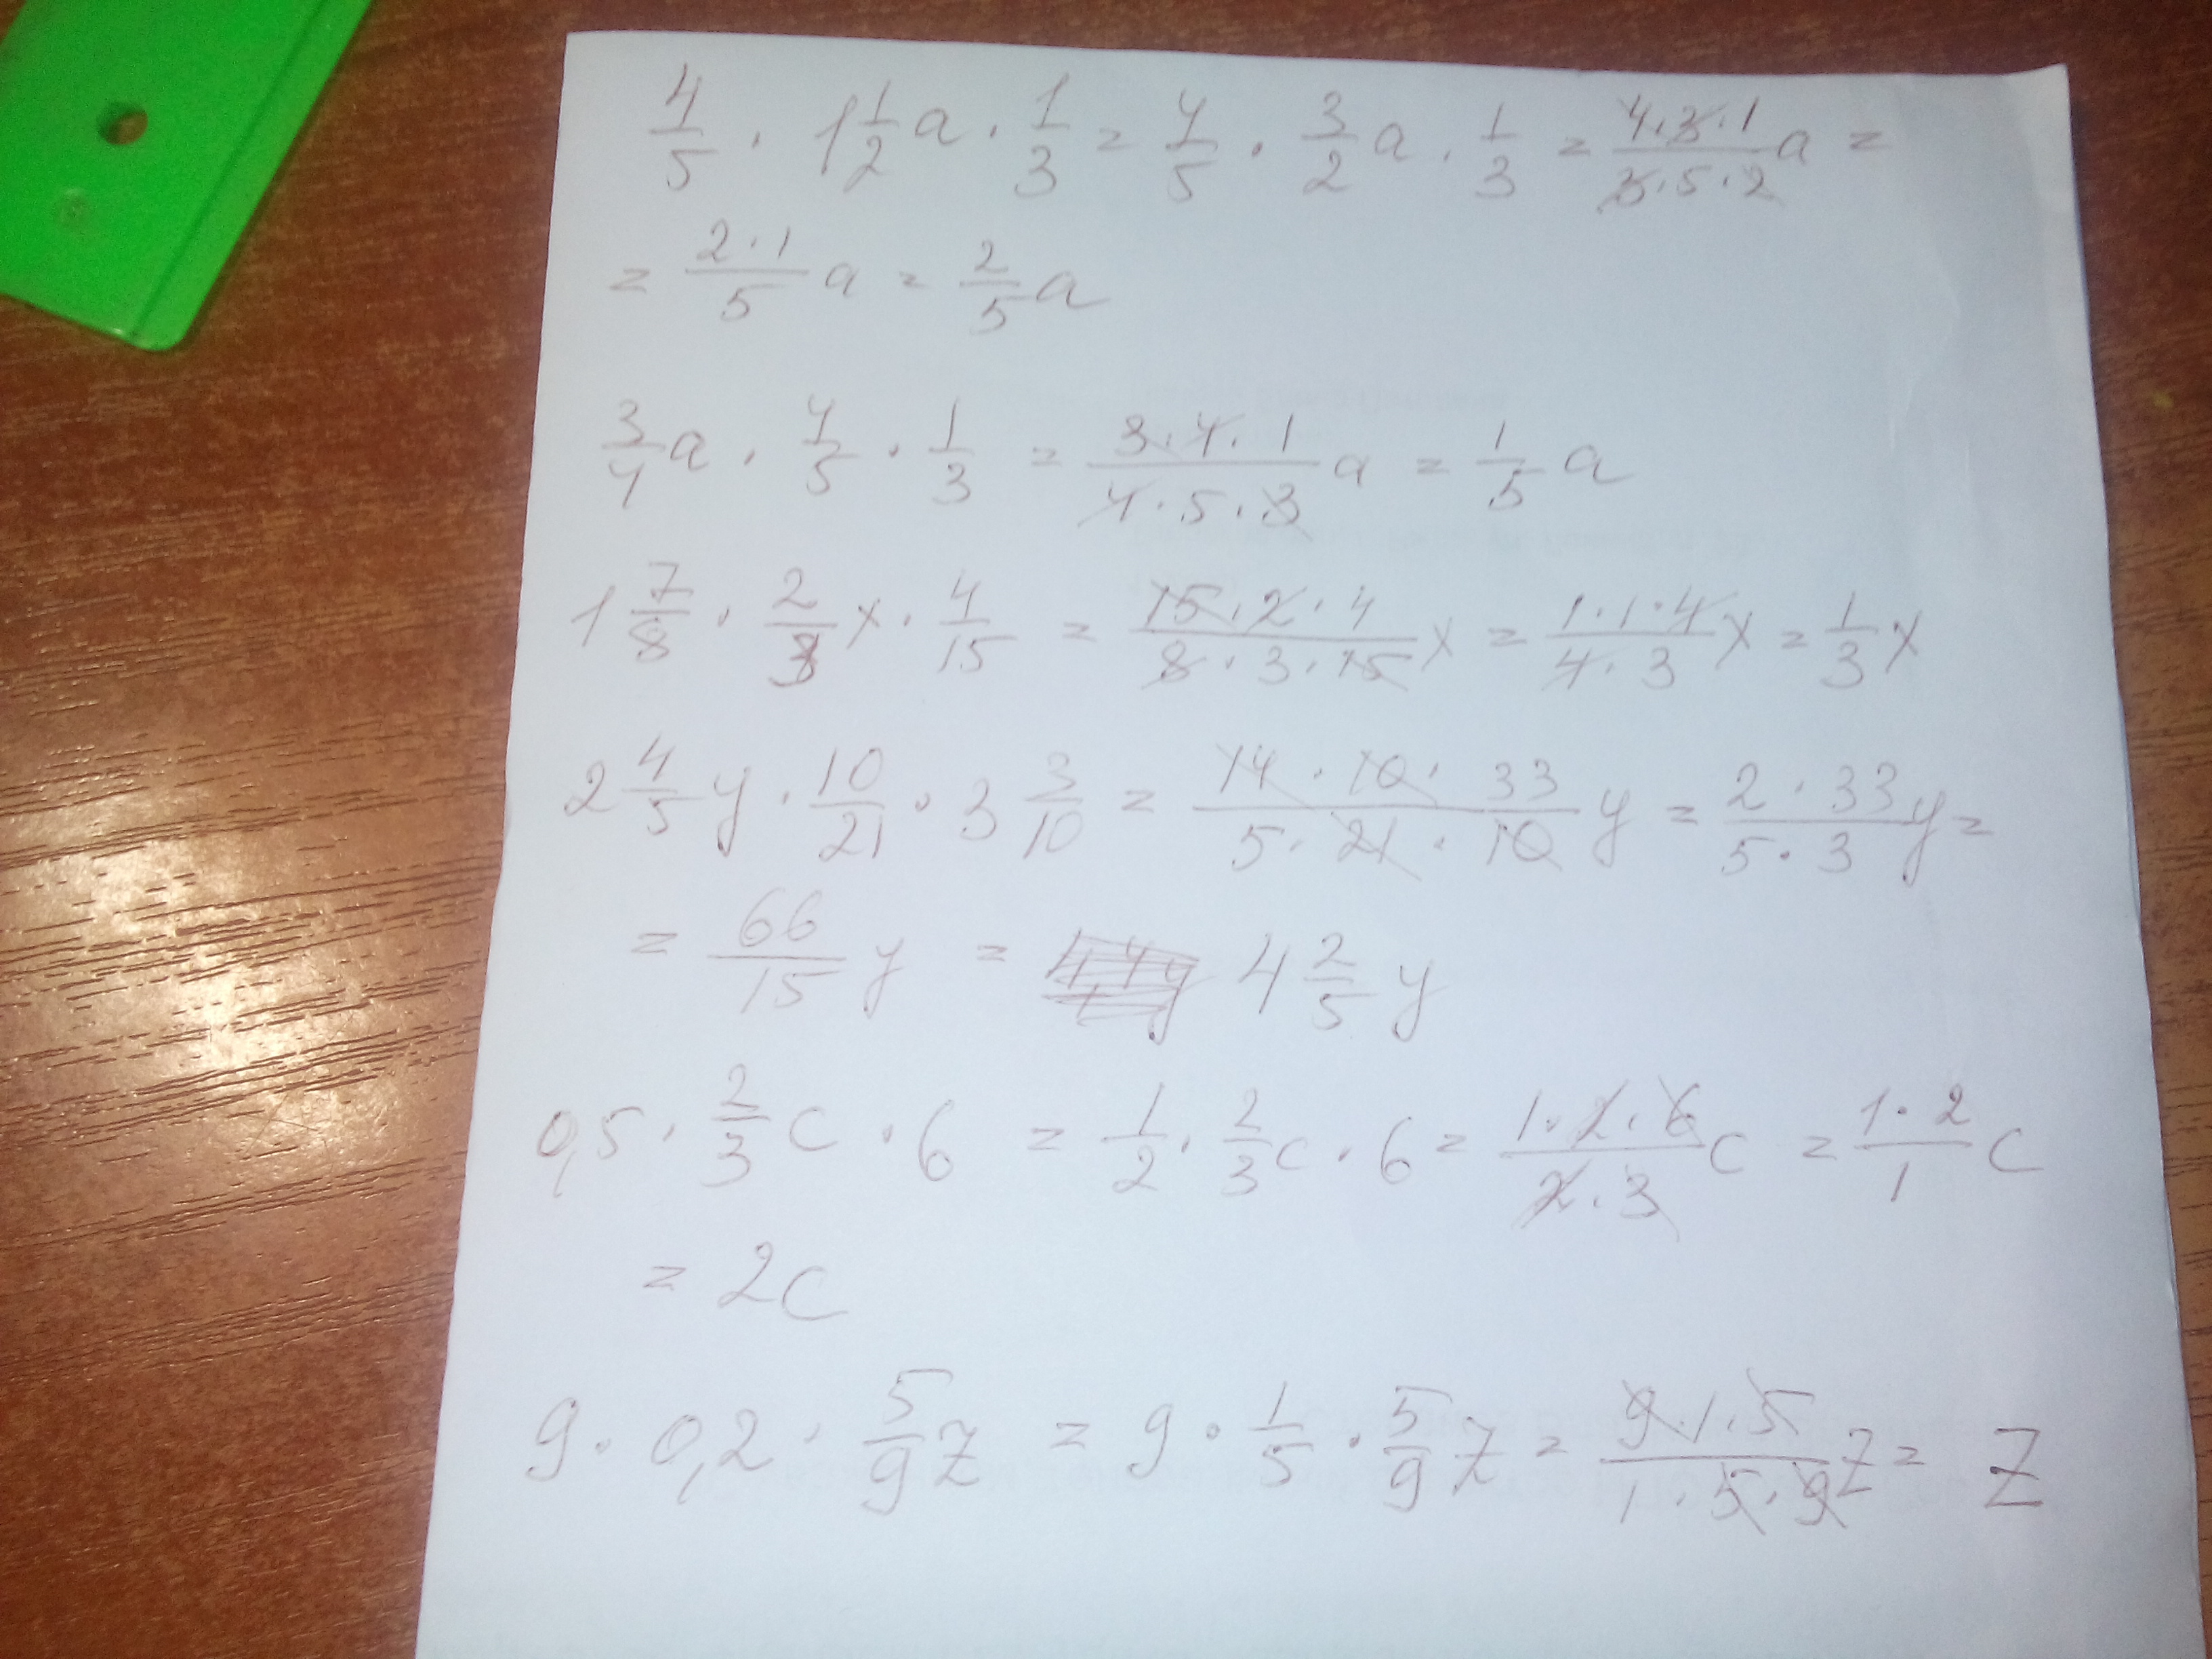 4/5 · 1 1/2 a · 1/3 = 4/5 · 3/2 a · 1/3 = 4·3·1/3·5·2 a =
= 2·1/5 a = 2/5 a
3/4 a · 4/5 · 1/3 = 3·4·1/4·5·3 a = 1/5 a
1 7/8 · 2/3 x · 4/15 = 15·2·4/8·3·15 x = 1·1·4/4·3 x = 1/3 x
2 4/5 y · 10/21 · 3 3/10 = 14·10·33/5·21·10 y = 2·33/5·3 y =
= 66/15 y = 4 2/5 y
0,5 · 2/3 c · 6 = 1/2 · 2/3 c · 6 = 1·2·6/2·3 c = 1·2/1 c
= 2c
9 · 0,2 · 5/9 z = 9 · 1/5 · 5/9 z = 9·1·5/1·5·9 z = z